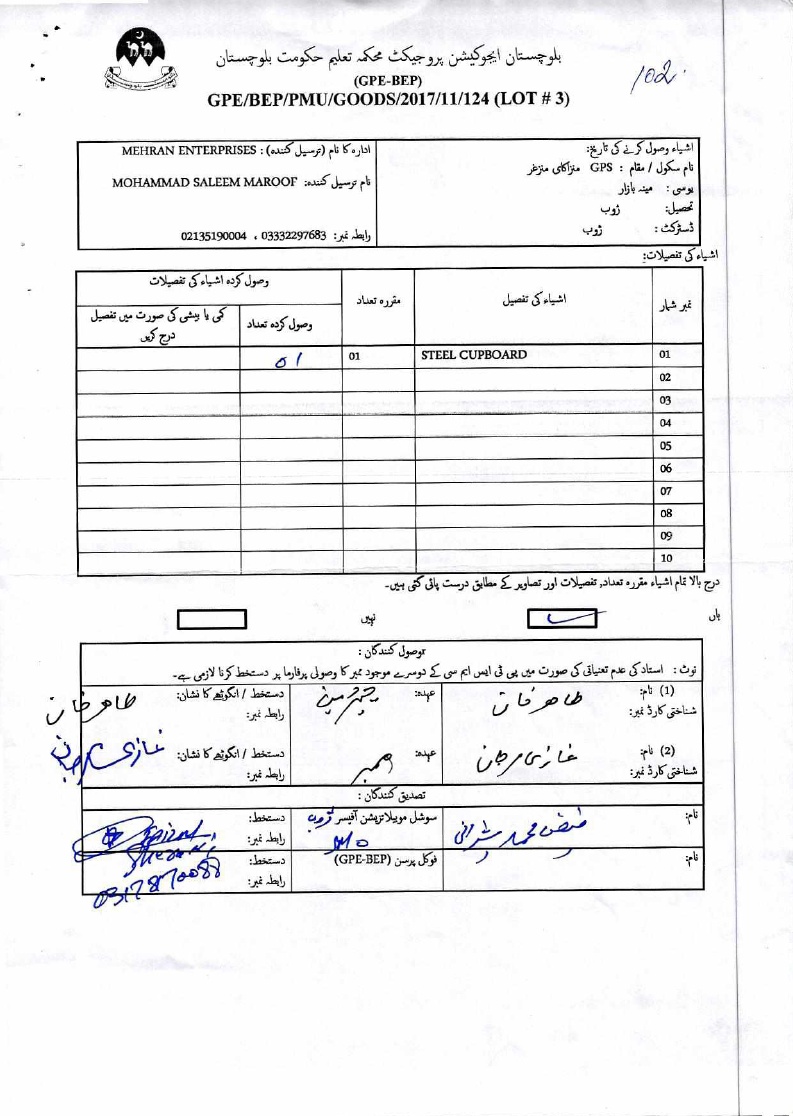 بلوچستان ایجوکیشن پروجیکٹ محکمہ تعلیم حکومت بلوچستان
(GPE-BEP)
102
GPE/BEP/PMU/GOODS/2017/11/124 (LOT # 3)
اشیاء وصول کرنے کی تاریخ:
نام سکول / مقام : GPS متزاکئی منزغر
یوسی : مینہ بازار
تحصیل: ژوب
ڈسٹرکٹ : ژوب
ادارہ کا نام (ترسیل کنندہ) : MEHRAN ENTERPRISES
نام ترسیل کنندہ: MOHAMMAD SALEEM MAROOF
رابطہ نمبر: 03332297683 ، 02135190004
اشیاء کی تفصیلات:
نمبر شمار اشیاء کی تفصیل مقررہ تعداد وصول کردہ اشیاء کی تفصیلات
وصول کردہ تعداد کمی یا بیشی کی صورت میں تفصیل درج کریں
01 STEEL CUPBOARD 01 01
02
03
04
05
06
07
08
09
10
درج بالا تمام اشیاء مقررہ تعداد، تفصیلات اور تصاویر کے مطابق درست پائی گئی ہیں۔
ہاں نہیں
توصول کنندگان :
نوٹ : استاد کی عدم تعنیاتی کی صورت میں پی ٹی ایس ایم سی کے دوسرے موجود ممبر کا وصولی پرفارما پر دستخط کرنا لازمی ہے۔
(1) نام: طاہر خان عہدہ: چیئرمین دستخط / انگوٹھے کا نشان: طاہر خان
شناختی کارڈ نمبر: رابطہ نمبر:
(2) نام: غازی مرجان عہدہ: ممبر دستخط / انگوٹھے کا نشان: غازی مرجان
شناختی کارڈ نمبر: رابطہ نمبر:
تصدیق کنندگان :
نام: فیض محمد شیرانی سوشل موبیلائزیشن آفیسر ژوب دستخط: Faizm
رابطہ نمبر: Sherani
نام: فوکل پرسن (GPE-BEP) دستخط:
رابطہ نمبر: 03178870088